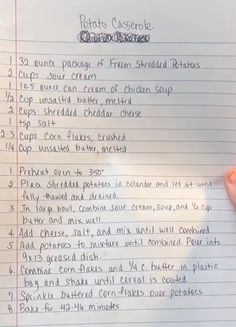 Potato Casserole
1 32 ounce package of Frozen Shredded Potatoes
2 cups sour cream
1 10.5 ounce can cream of chicken soup
1/2 cup unsalted butter, melted
2 cups shredded cheddar cheese
1 tsp salt
2-3 cups corn flakes, crushed
1/4 cup unsalted butter, melted
1. Preheat oven to 350°
2. Place shredded potatoes in colander and let sit until
fully thawed and drained.
3. In large bowl, combine sour cream, soup, and 1/2 cup
butter and mix well.
4. Add cheese, salt, and mix until well combined.
5. Add potatoes to mixture until combined. Pour into
9x13 greased dish.
6. Combine corn flakes and 1/4 c. butter in plastic
bag and shake until cereal is coated.
7. Sprinkle buttered corn flakes over potatoes
8. Bake for 42-46 minutes